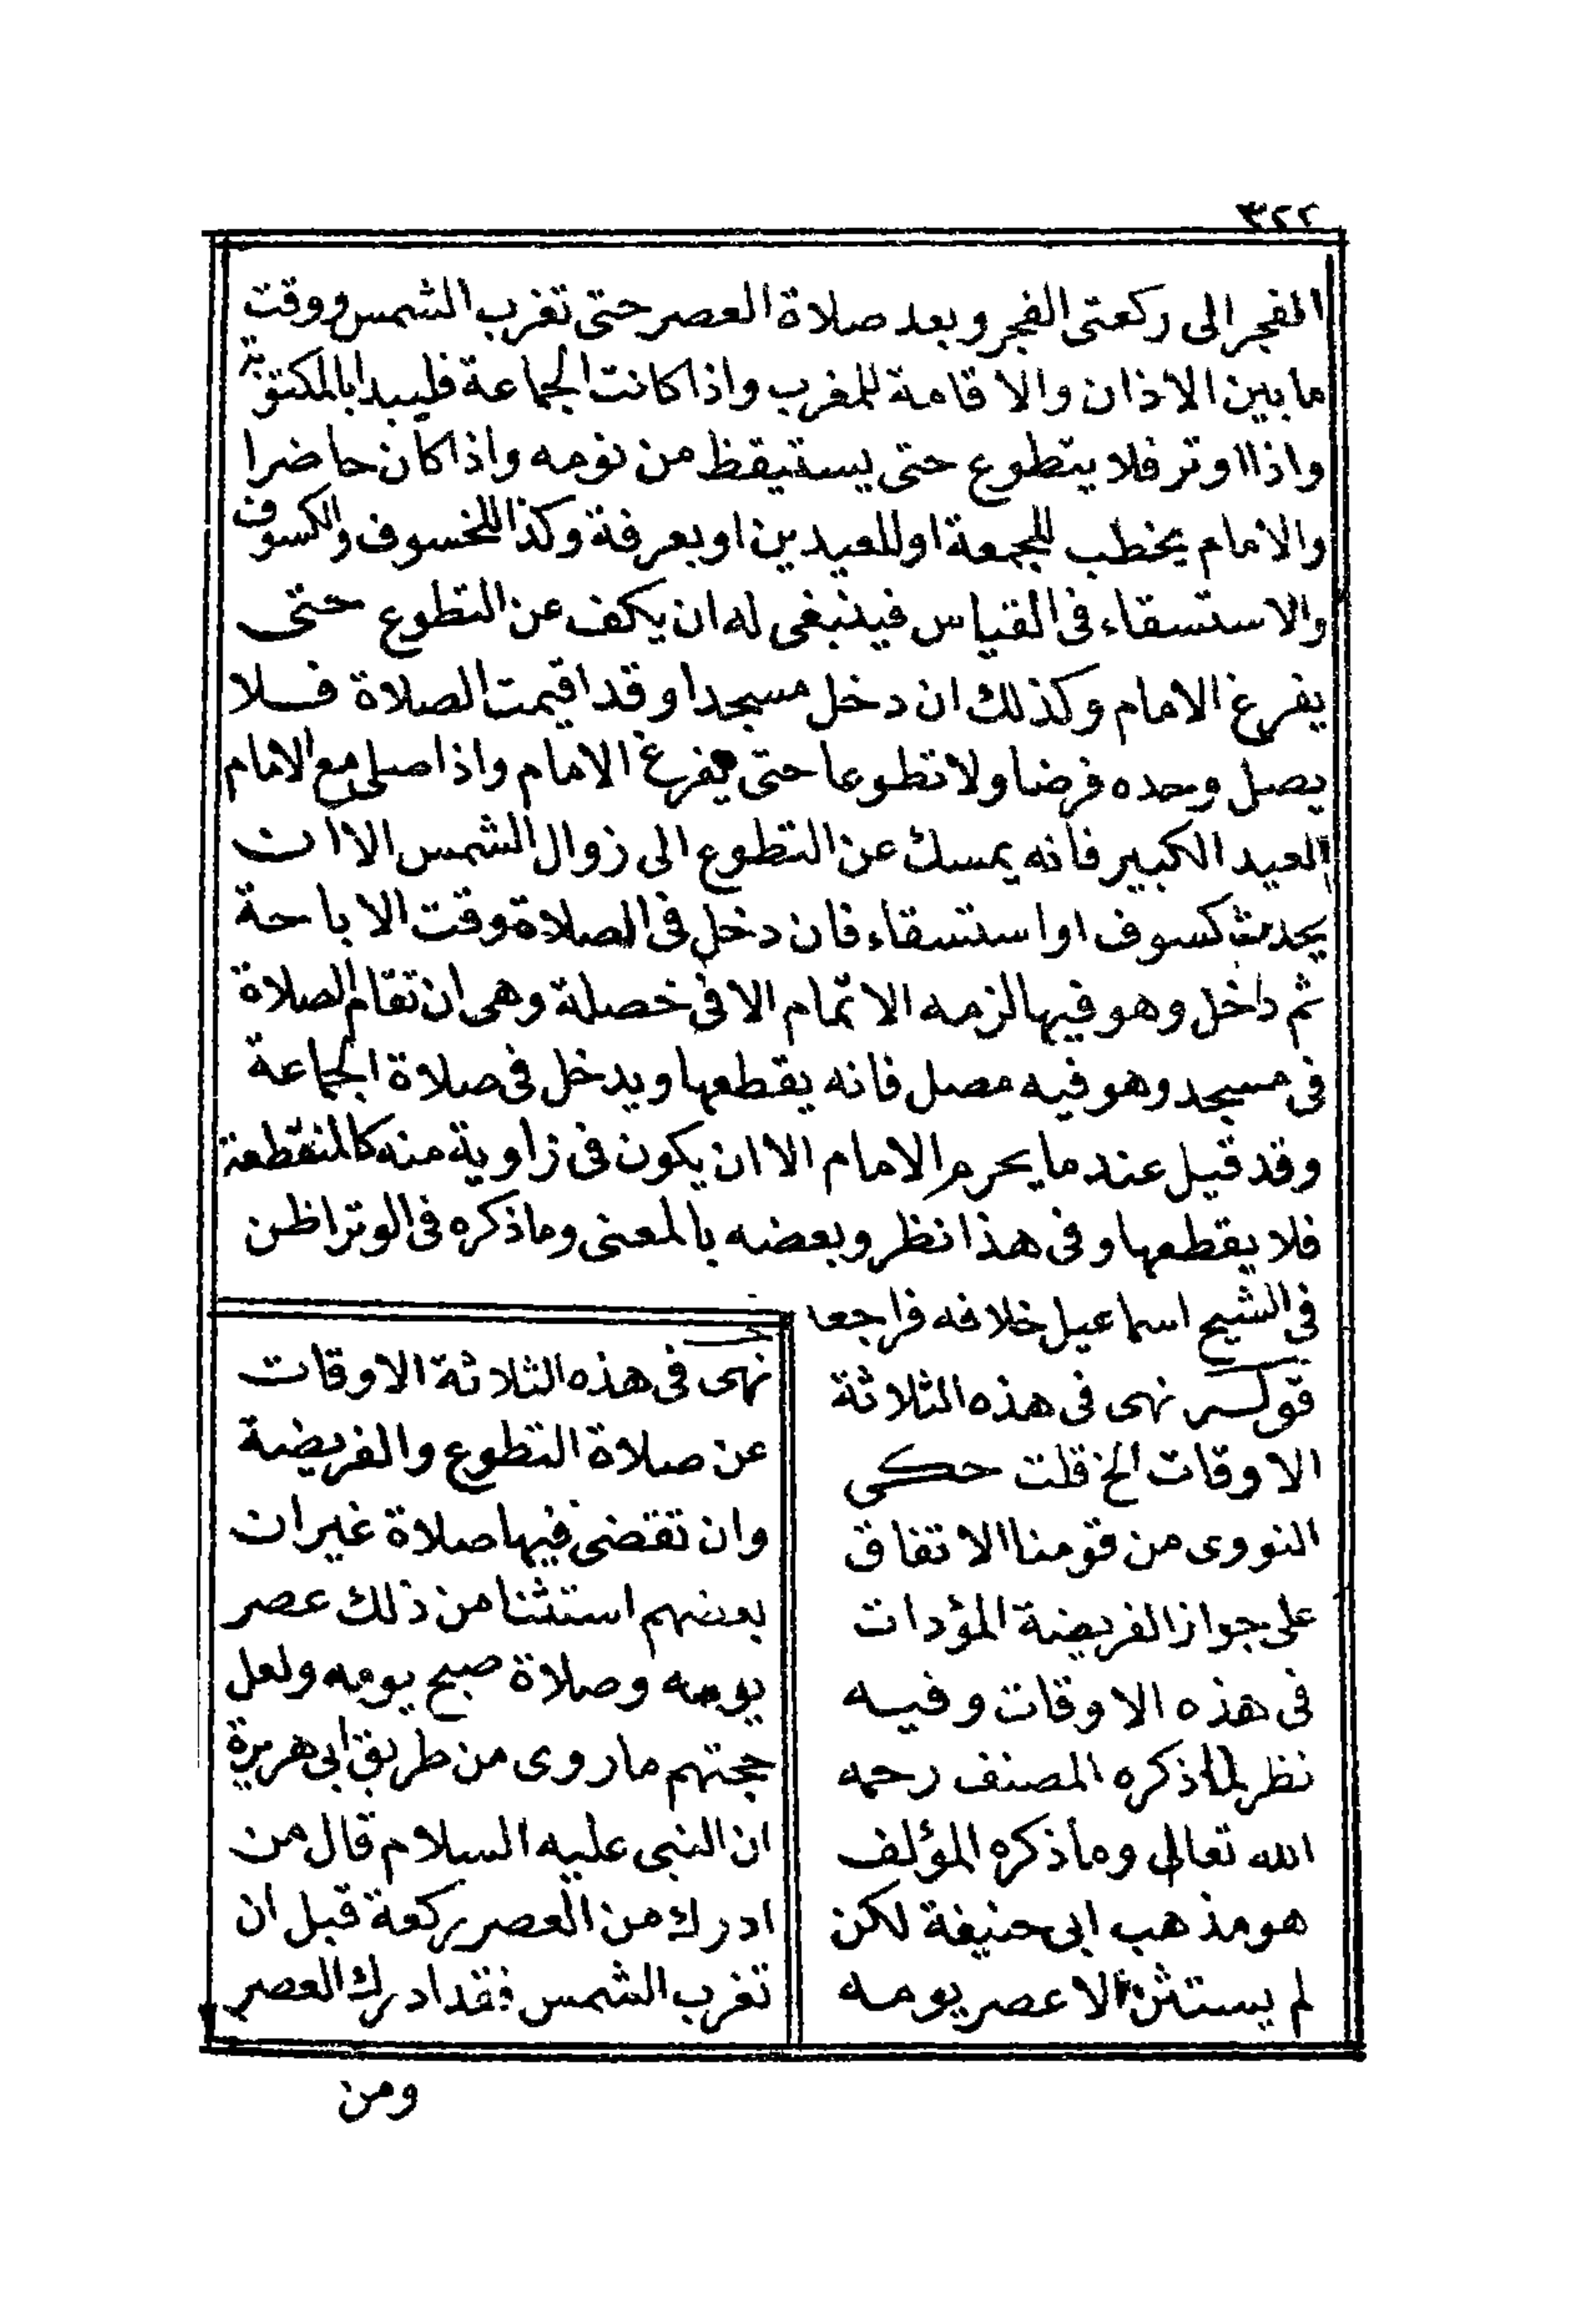 ٣٢٢
الفجر الى ركعتى الفجر وبعد صلاة العصر حتى تغرب الشمس ووقت
ما بين الاذان والاقامة للمغرب واذا كانت الجماعة فليبدا بالمكتوبة
واذا اوتر فلا يتطوع حتى يستيقظ من نومه واذا كان حاضرا
والامام يخطب للجمعة او للعيدين او بعرفة وكذا للخسوف والكسوف
والاستسقاء فى القياس فينبغى له ان يكف عن التطوع حتى
يفرغ الامام وكذلك ان دخل مسجدا وقد اقيمت الصلاة فلا
يصل وحده فرضا ولا تطوعا حتى يفرغ الامام واذا صلى مع الامام
العيد الكبير فانه يمسك عن التطوع الى زوال الشمس الا ان
يحدث كسوف او استسقاء فان دخل فى الصلاة وقت الاباحة
ثم داخل وهو فيها لزمه الاتمام الا فى خصلة وهى ان تقام الصلاة
فى مسجد وهو فيه مصل فانه يقطعها ويدخل فى صلاة الجماعة
وقد قيل عند ما يحرم الامام الا ان يكون فى زاوية منه كالمنقطعة
فلا يقطعها وفى هذا نظر وبعضه بالمعنى وما ذكره فى الوتر اظن
فى الشيخ اسماعيل خلافه فراجعا
قوله نهى فى هذه الثلاثة
الاوقات الخ قلت حكى
النووى من قومنا الاتفاق
على جواز الفريضة المؤدات
فى هذه الاوقات وفيه
نظر لما ذكره المصنف رحمه
الله تعالى وما ذكره المؤلف
هو مذهب ابى حنيفة لكن
لم يستثن الا عصر يومه
نهى فى هذه الثلاثة الاوقات
عن صلاة التطوع والفريضة
وان تقضى فيها صلاة غير ان
بعضهم استثنا من ذلك عصر
يومه وصلاة صبح يومه ولعل
حجتهم ما روى من طريق ابى هريرة
ان النبى عليه السلام قال من
ادرك من العصر ركعة قبل ان
تغرب الشمس فقد ادرك العصر
ومن